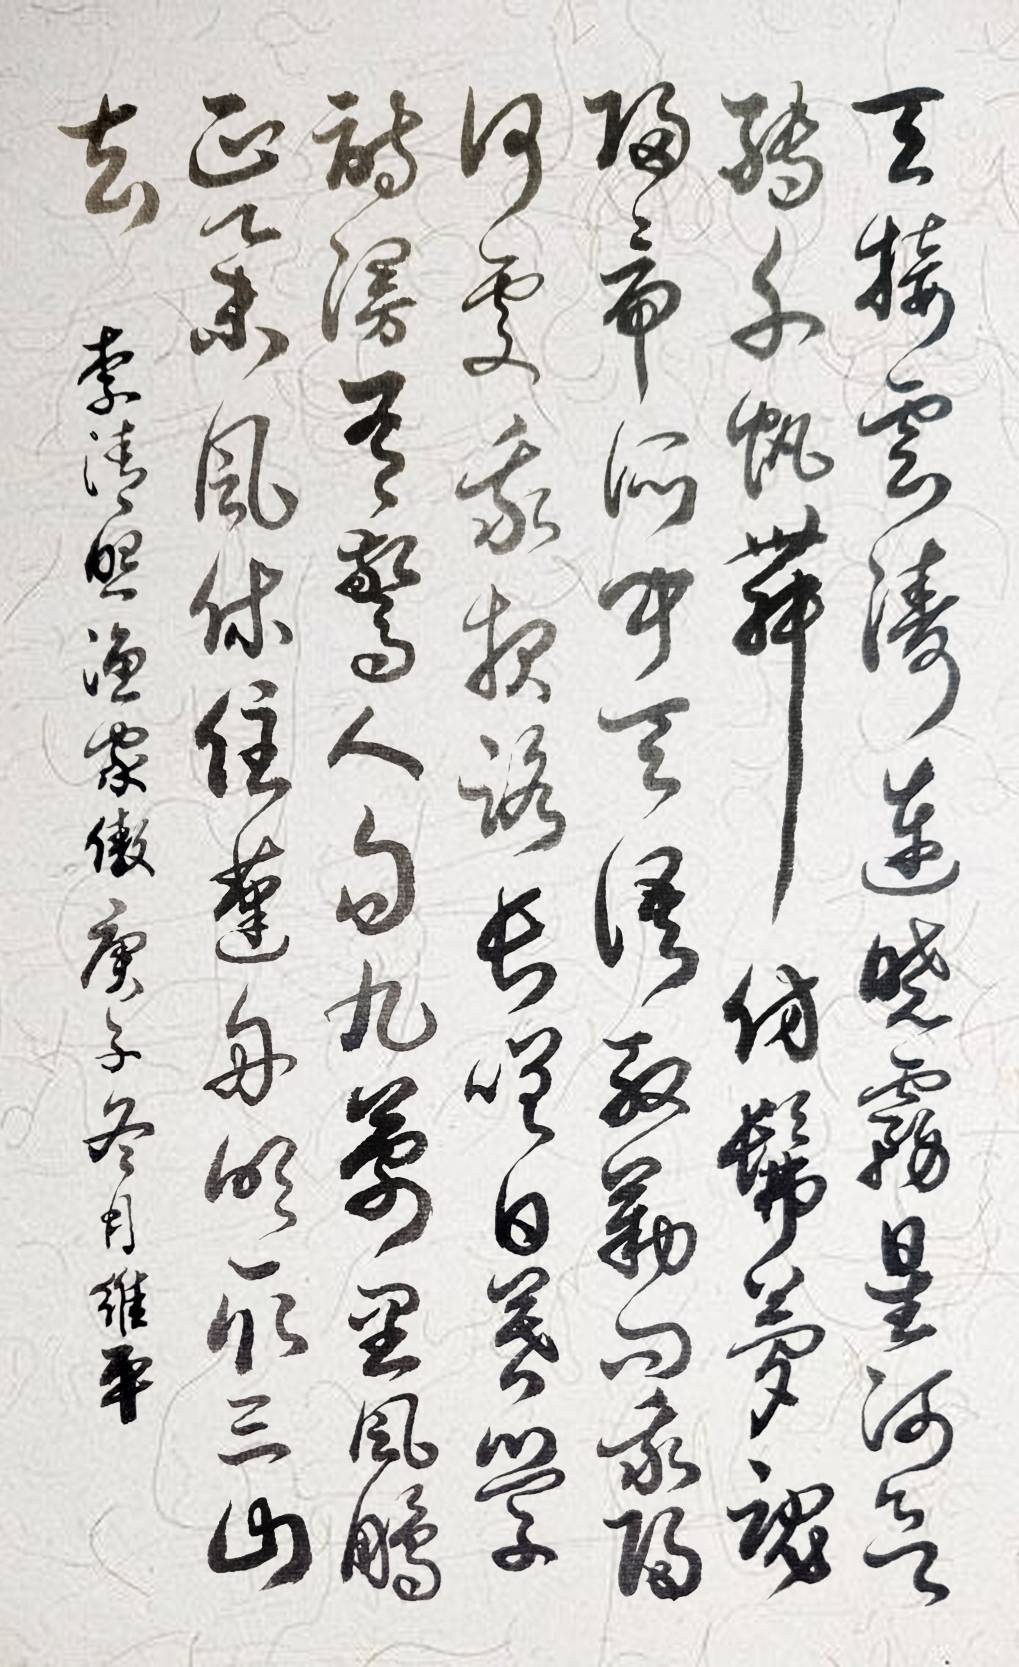 天接雲濤連曉霧星河欲
轉千帆舞仿髴夢魂
歸帝所聞天語殷勤問我歸
何處我報路長嗟日暮學
詩漫有驚人句九萬里風鵬
正舉風休住蓬舟吹取三山
去
李清照漁家傲庚子冬月維平